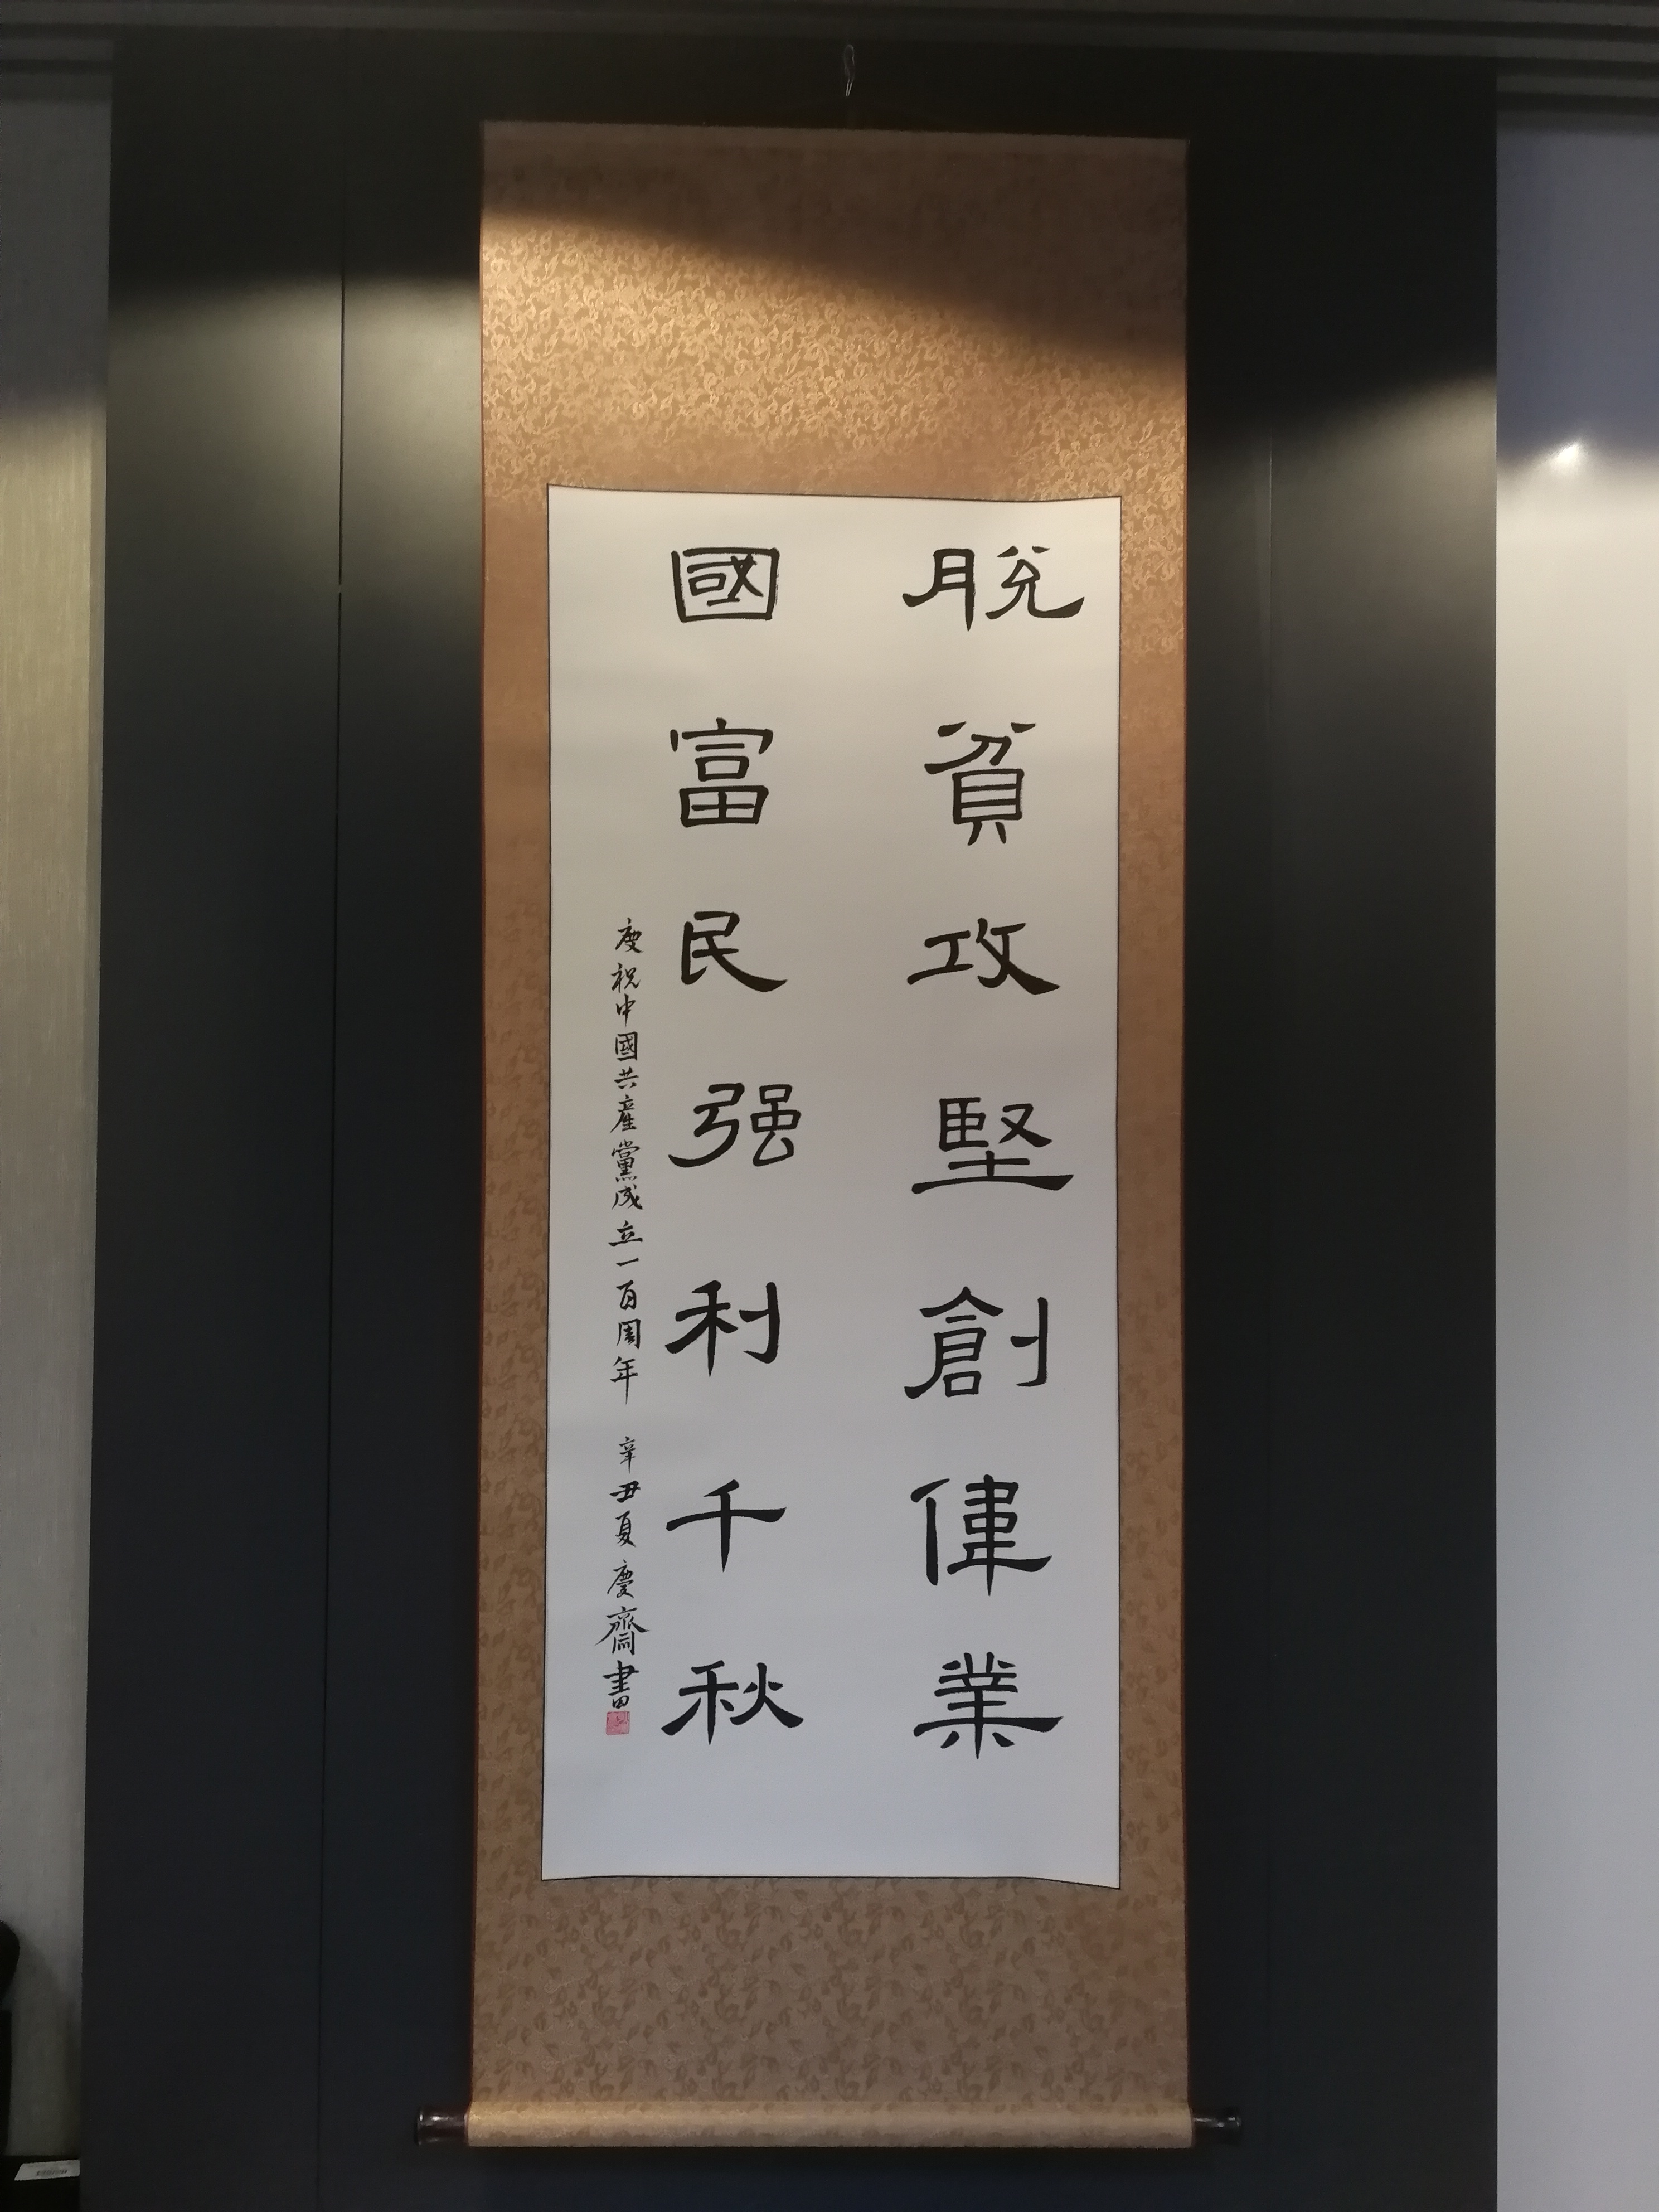 脱貧攻堅創偉業
國富民强利千秋
慶祝中國共產黨成立一百周年 辛丑夏慶齋書